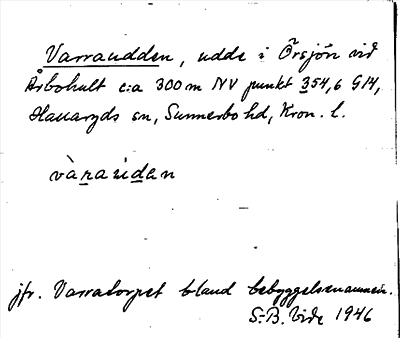 Varraudden, udde i Örsjön vid
Årbohult c:a 300 m NV punkt 354,6 G14,
Hallaryds sn, Sunnerbo hd, Kron. l.
vàrauden
jfr. Varratorpet bland bebyggelsenamnen.
S-B. Vide 1946